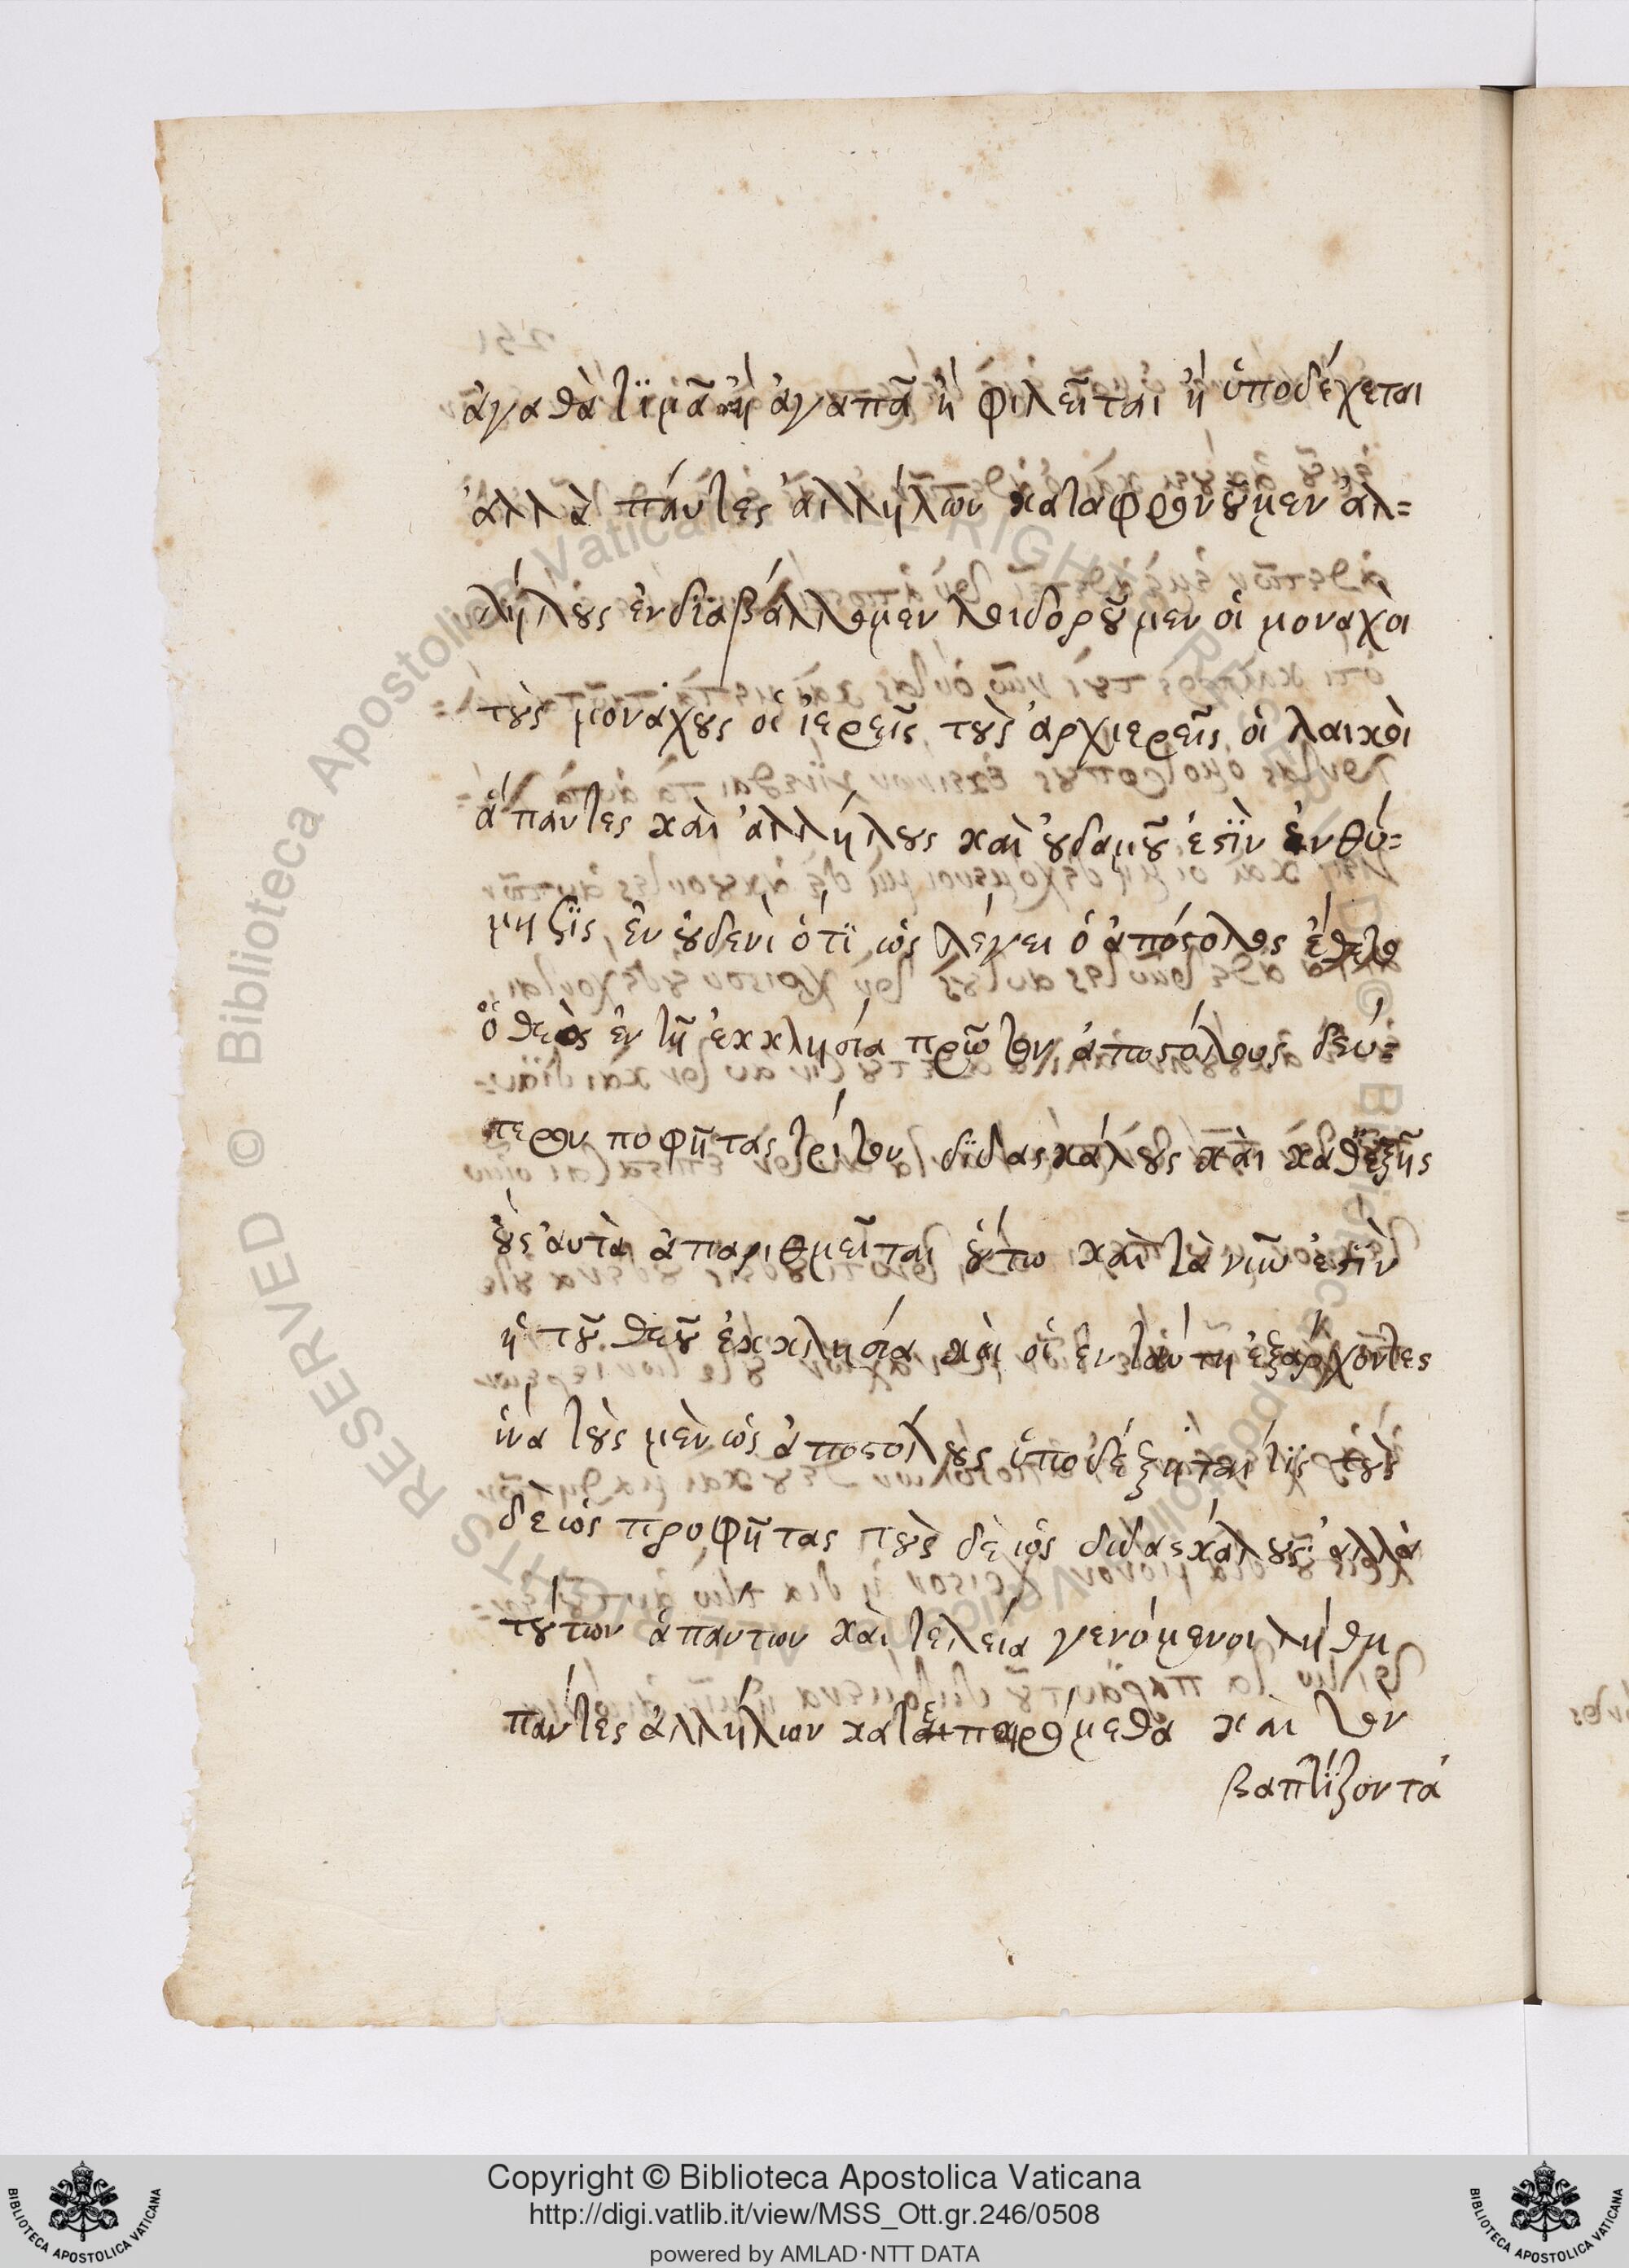 ἀγαθὰ τϊμᾶ ἢ ἀγαπᾶ ἢ φιλεῖται ἢ ὑποδέχεται
ἀλλὰ πάντες ἀλλήλων καταφρονοῦμεν ἀλ=
λήλους ἐνδϊαβάλλομεν λοιδοροῦμεν οἱ μοναχοὶ
τοὺς μονάχους οἱ ἱερεῖς τοὺς ἀρχιερεῖς οἱ λαικοὶ
ἅπαντες καὶ ἀλλήλους καὶ οὐδαμοῦ ἐστὶν ἐνθύ=
μηζϊς ἐν οὐδενὶ ὅτϊ ὡς λέγει ὁ ἀπόστολος ἔθετο
ὁ θεὸς ἐν τῆ ἐκκλησία πρῶτον ἀποστόλους δεύ=
περον ποφῆτας τρίτον δϊδασκάλους καὶ καθεξῆς
οὓς αὐτὰ ἀπαριθμεῖται οὕτω καὶ τὰ νῦν ἐστὶν
ἡ τοῦ θεοῦ ἐκκλησία καὶ οἱ ἐν ταύτη ἐξάρχοντες
ἵνα τοὺς μὲν ὡς ἀποστόλους ὑποδέξηται τὶς τοὺς
δὲ ὡς προφῆτας τοὺς δὲ ὡς διδασκάλους ἀλλὰ
τούτων ἁπάντων καὶ τελεία γενόμενοι λήθη
πάντες ἀλλήλων κατεπαιρόμεθα καὶ τὸν
βαπτίζοντα
Copyright © Biblioteca Apostolica Vaticana
http://digi.vatlib.it/view/MSS_Ott.gr.246/0508
powered by AMLAD·NTT DATA
BIBLIOTECA APOSTOLICA VATICANA
BIBLIOTECA APOSTOLICA VATICANA